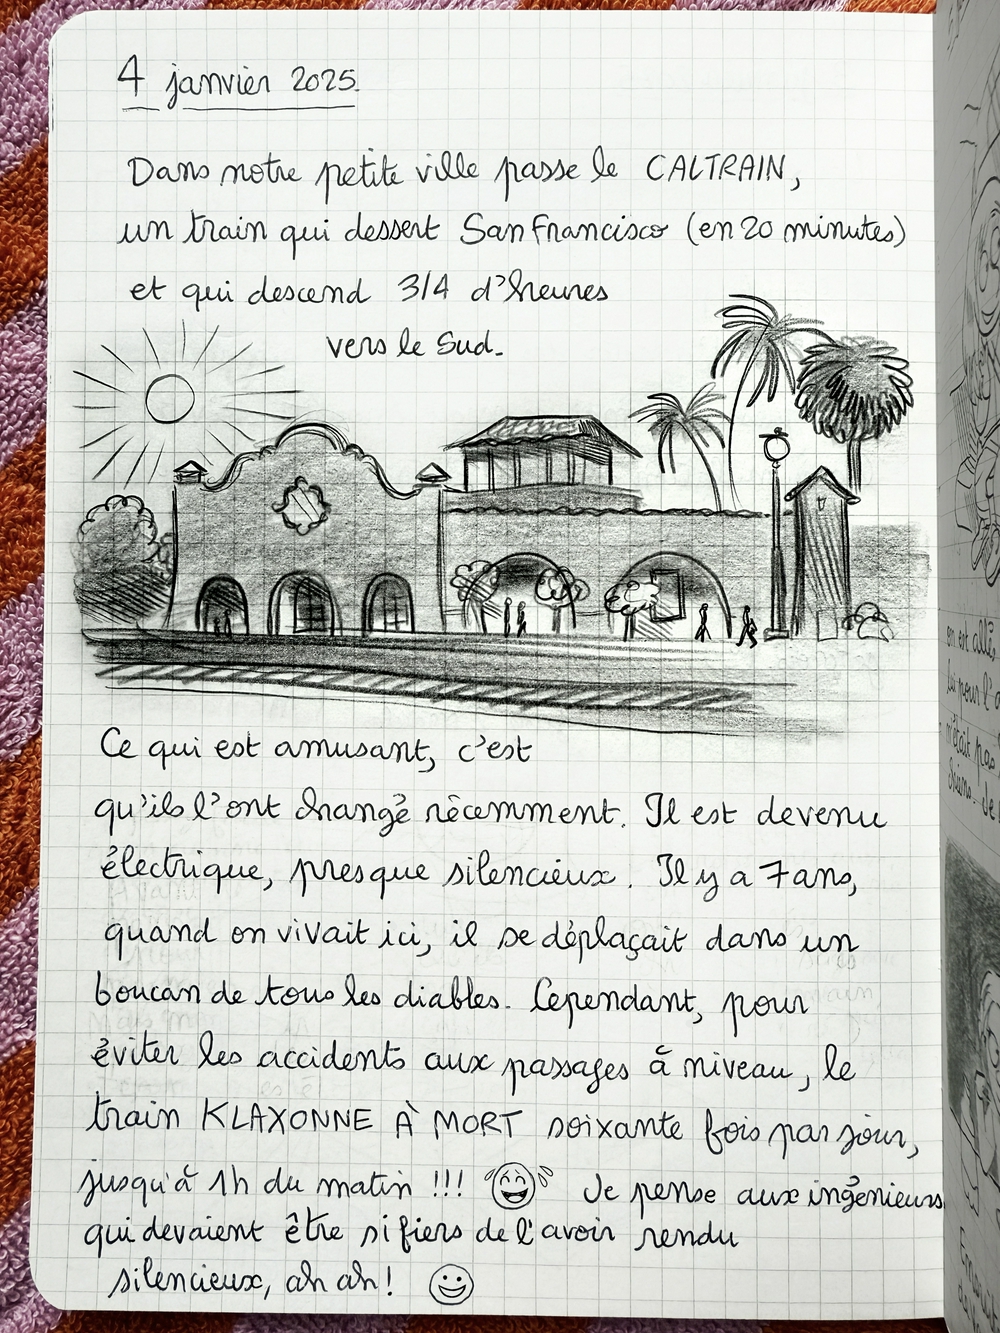 4 janvier 2025
Dans notre petite ville passe le CALTRAIN,
un train qui dessert San Francisco (en 20 minutes)
et qui descend 3/4 d'heures
vers le Sud.
Ce qui est amusant, c'est
qu'ils l'ont changé récemment. Il est devenu
électrique, presque silencieux. Il y a 7 ans,
quand on vivait ici, il se déplaçait dans un
boucan de tous les diables. Cependant, pour
éviter les accidents aux passages à niveau, le
train KLAXONNE À MORT soixante fois par jour,
jusqu'à 1h du matin !!! Je pense aux ingénieurs
qui devaient être si fiers de l'avoir rendu
silencieux, ah ah !
en est allé